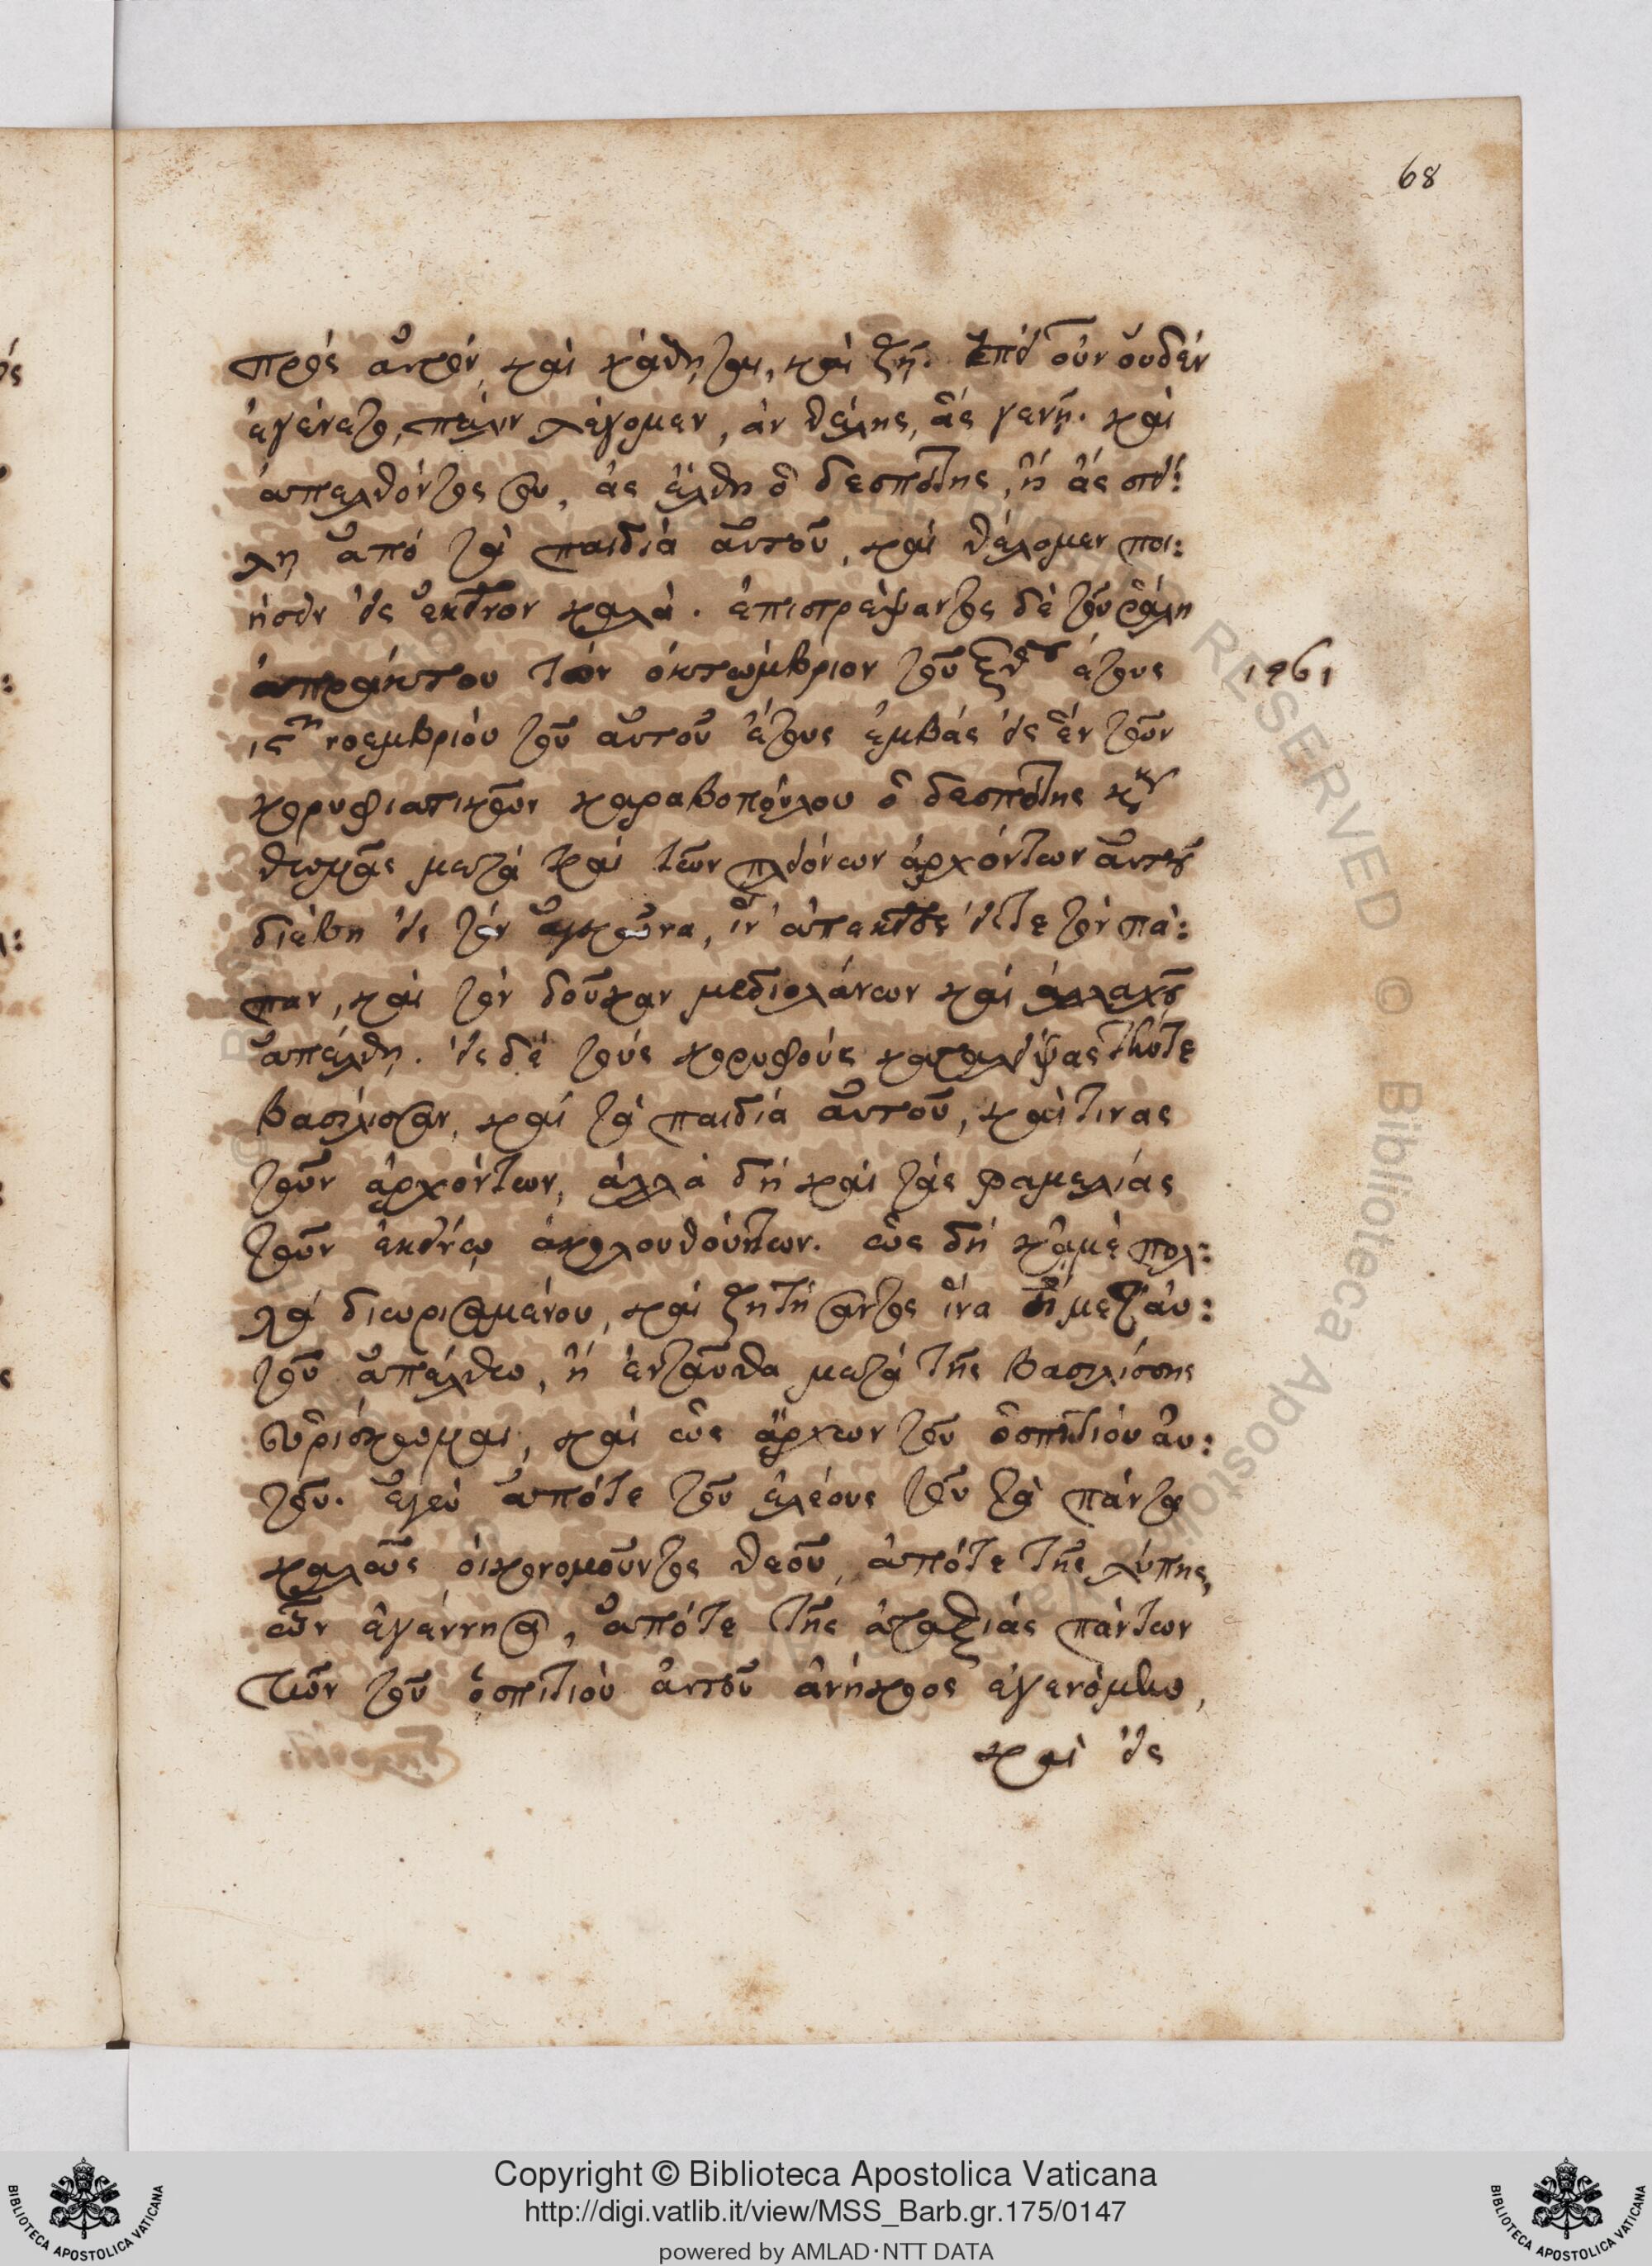 68
πρὸς αὐτὸν, καὶ κάθηται, καὶ ζῇ. ἐπεὶ οὖν οὐδὲν
ἐγένετο, πάλιν λέγομεν, ἂν θέλης, ἂς γενῇ. καὶ
ἀπελθόντός σου, ἂς ἔλθη ὁ δεσπότης, ἢ ἂς στεί:
λη ἀπὸ τὰ παιδία αὐτοῦ, καὶ θέλομεν ποι:
ήσειν εἰς ἐκεῖνον καλά. ἐπιστρέψαντος δὲ τοῦ ῥάλη
ἀπράκτου τὸν ὀκτώμβριον τοῦ ξθου ἔτους
1461
ιςη νοεμβρίου τοῦ αὐτοῦ ἔτους ἐμβὰς εἰς ἓν τῶν
κορυφιατικῶν καραβοπούλου ὁ δεσπότης κὺρ
θωμᾶς μετὰ καὶ τῶν πλειόνων ἀρχόντων αὐτοῦ
διέβη εἰς τὸν ἀγκῶνα, ἵν' ἀπεκεῖσε εἴτε τὸν πά:
παν, καὶ τὸν δοῦκαν μεδιολάνων καὶ ἀλλαχοῦ
ἀπέλθῃ. εἰς δὲ τοὺς κορυφοὺς καταλείψας τήντε
βασίλισσαν, καὶ τὰ παιδία αὐτοῦ, καί τινας
τῶν ἀρχόντων, ἀλλὰ δὴ καὶ τὰς φαμελίας
τῶν ἐκείνῳ ἀκολουθούντων. ὡς δὴ κἀμὲ πολ:
λὰ διωρισαμένου, καὶ ζητήσαντος ἵνα ἢ μετ' αὐ:
τοῦ ἀπέλθω, ἢ ἐνταῦθα μετὰ τῆς βασιλίσσης
εὑρίσκωμαι, καὶ ὡς ἄρχων τοῦ ὁσπιτίου αὐ:
τοῦ. ἐγὼ ἀπότε τοῦ ἐλέους τοῦ τὰ πάντα
καλῶς οἰκονομοῦντος θεοῦ, ἀπότε τῆς λύπης,
ὧν ἐγέννησα, ἀπότε τῆς ἀταξίας πάντων
τῶν τοῦ ὁσπιτίου αὐτοῦ ἀνήκοος ἐγενόμην,
καὶ εἰς
Copyright © Biblioteca Apostolica Vaticana
http://digi.vatlib.it/view/MSS_Barb.gr.175/0147
powered by AMLAD·NTT DATA